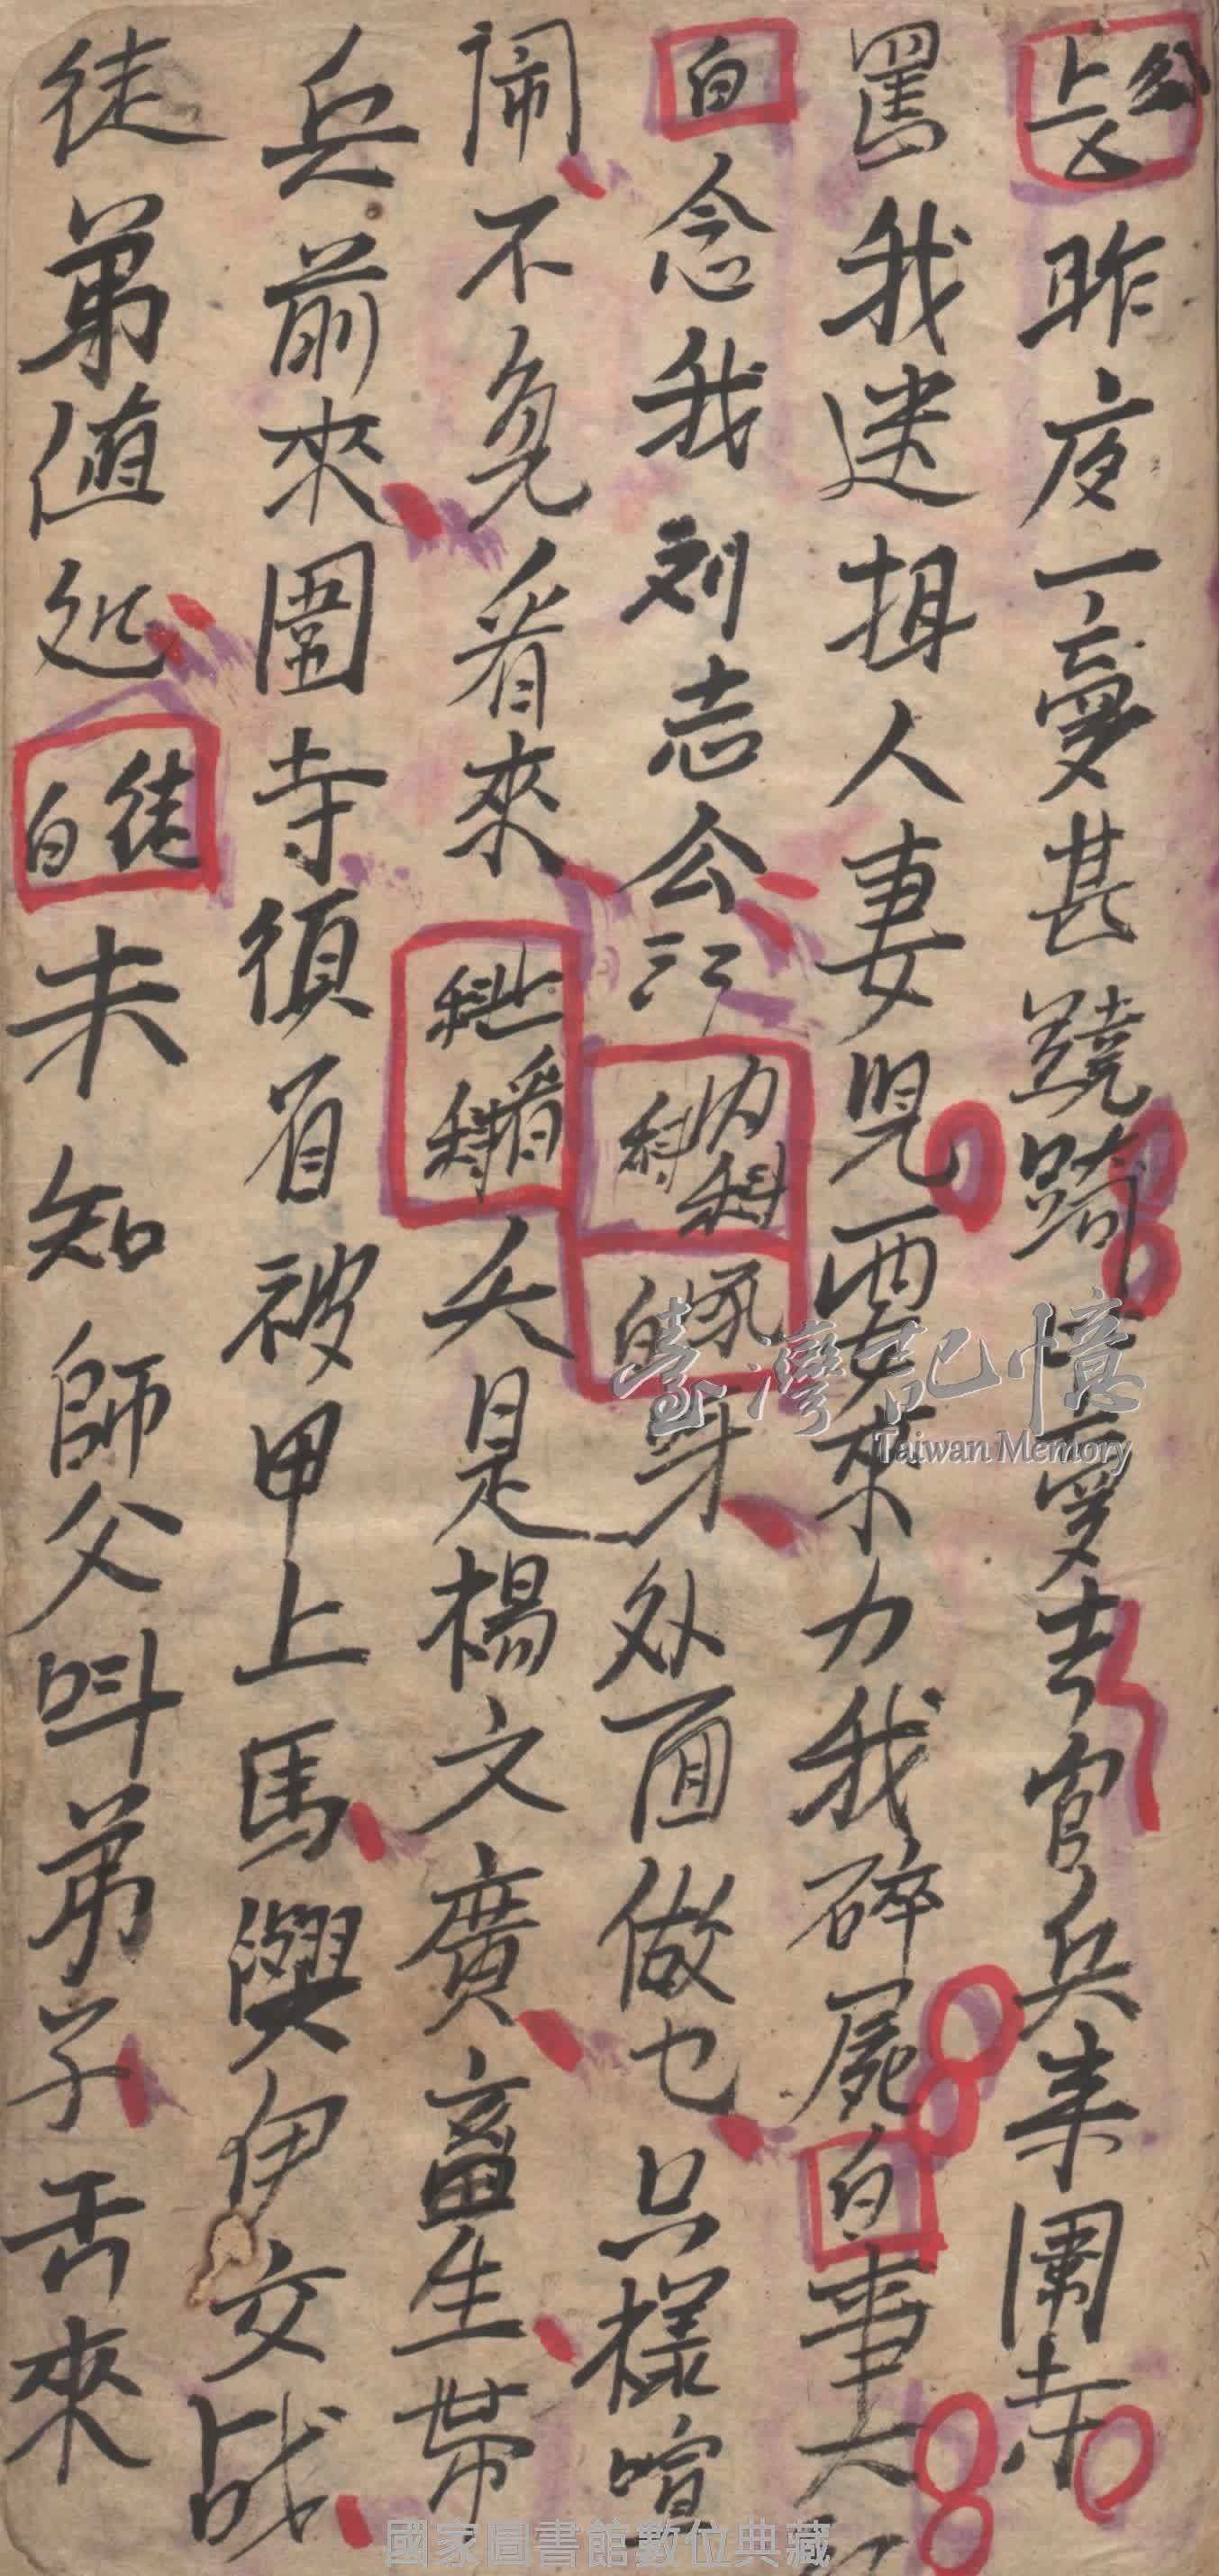 公上又昨夜一夢甚蹺蹊夢去官兵來圍寺
罵我迷拐人妻児兩要來力我碎屍白事大
白念我刘志公內科科白身外面做乜只樣喧
鬧不免看來科看科夭是楊文廣畜生帶
兵前來圍寺須着被甲上馬與伊交战
徒弟值处徒白未知師父叫弟子舌來
臺灣記憶
Taiwan Memory
國家圖書館數位典藏